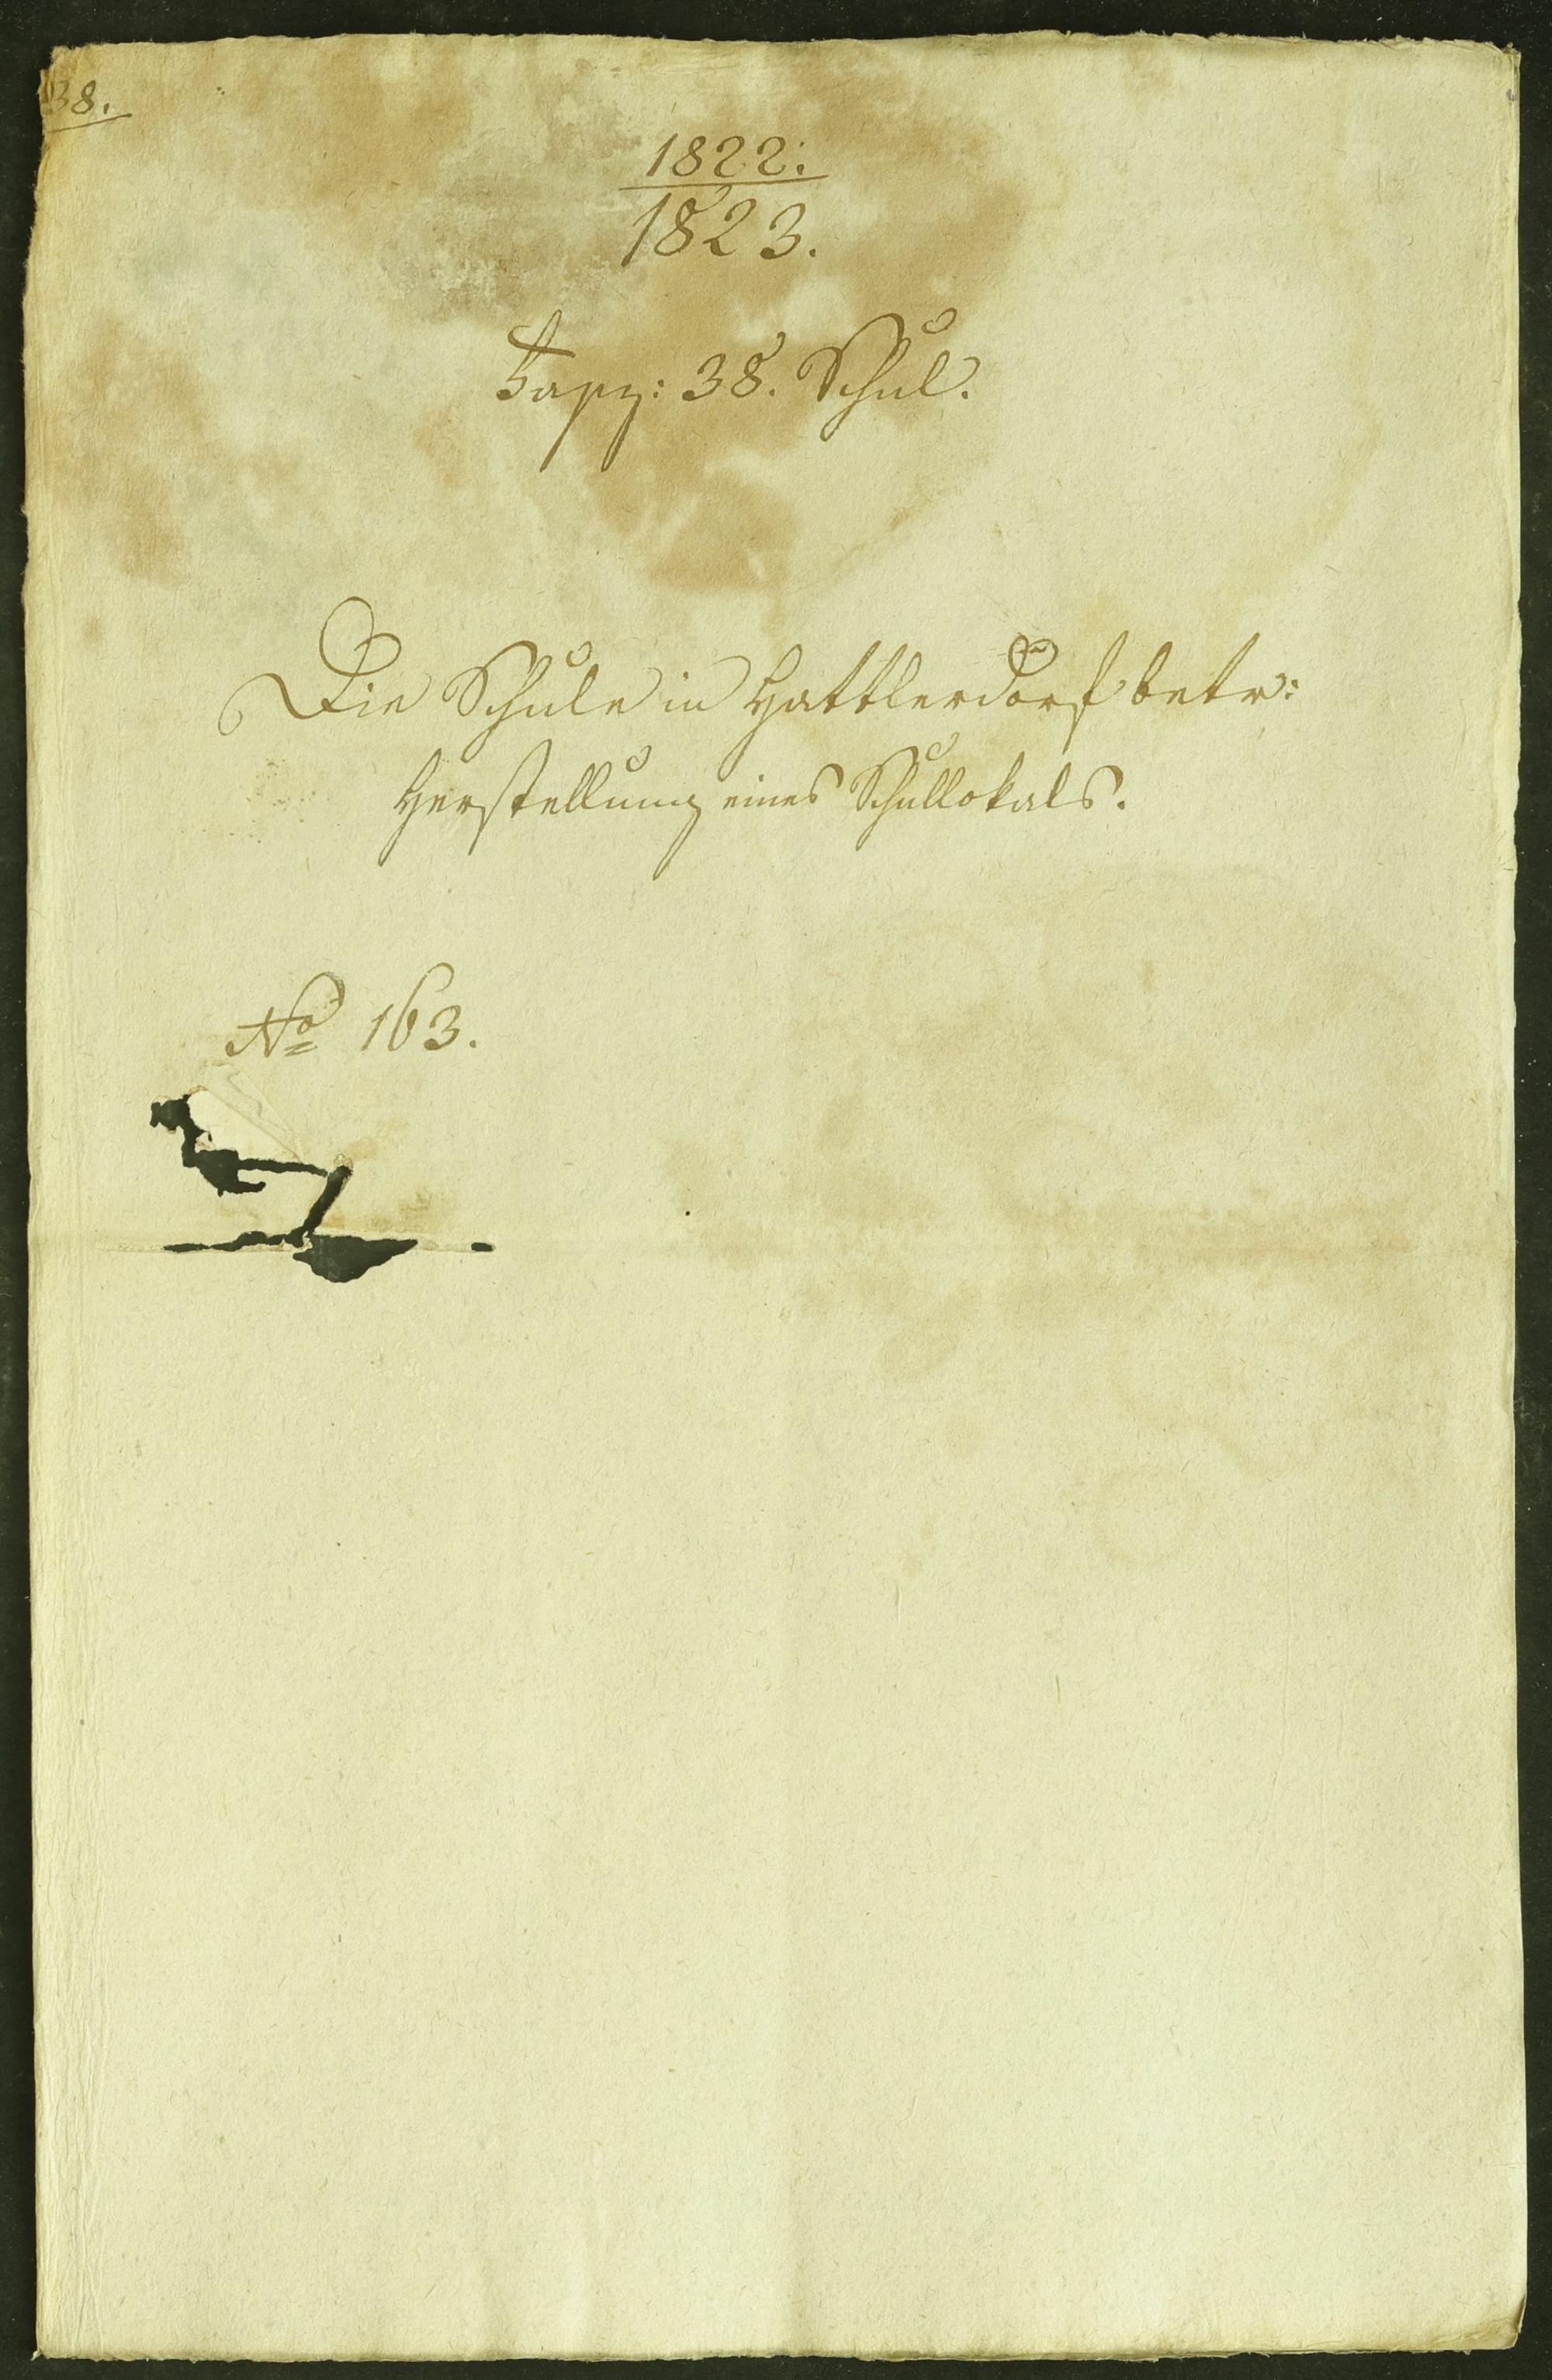 38.
1822.
1823.
Fasz: 38. Schul.
Die Schule in Hattlerdorf betr:
Herstellung eines Schullokals.
No 163.